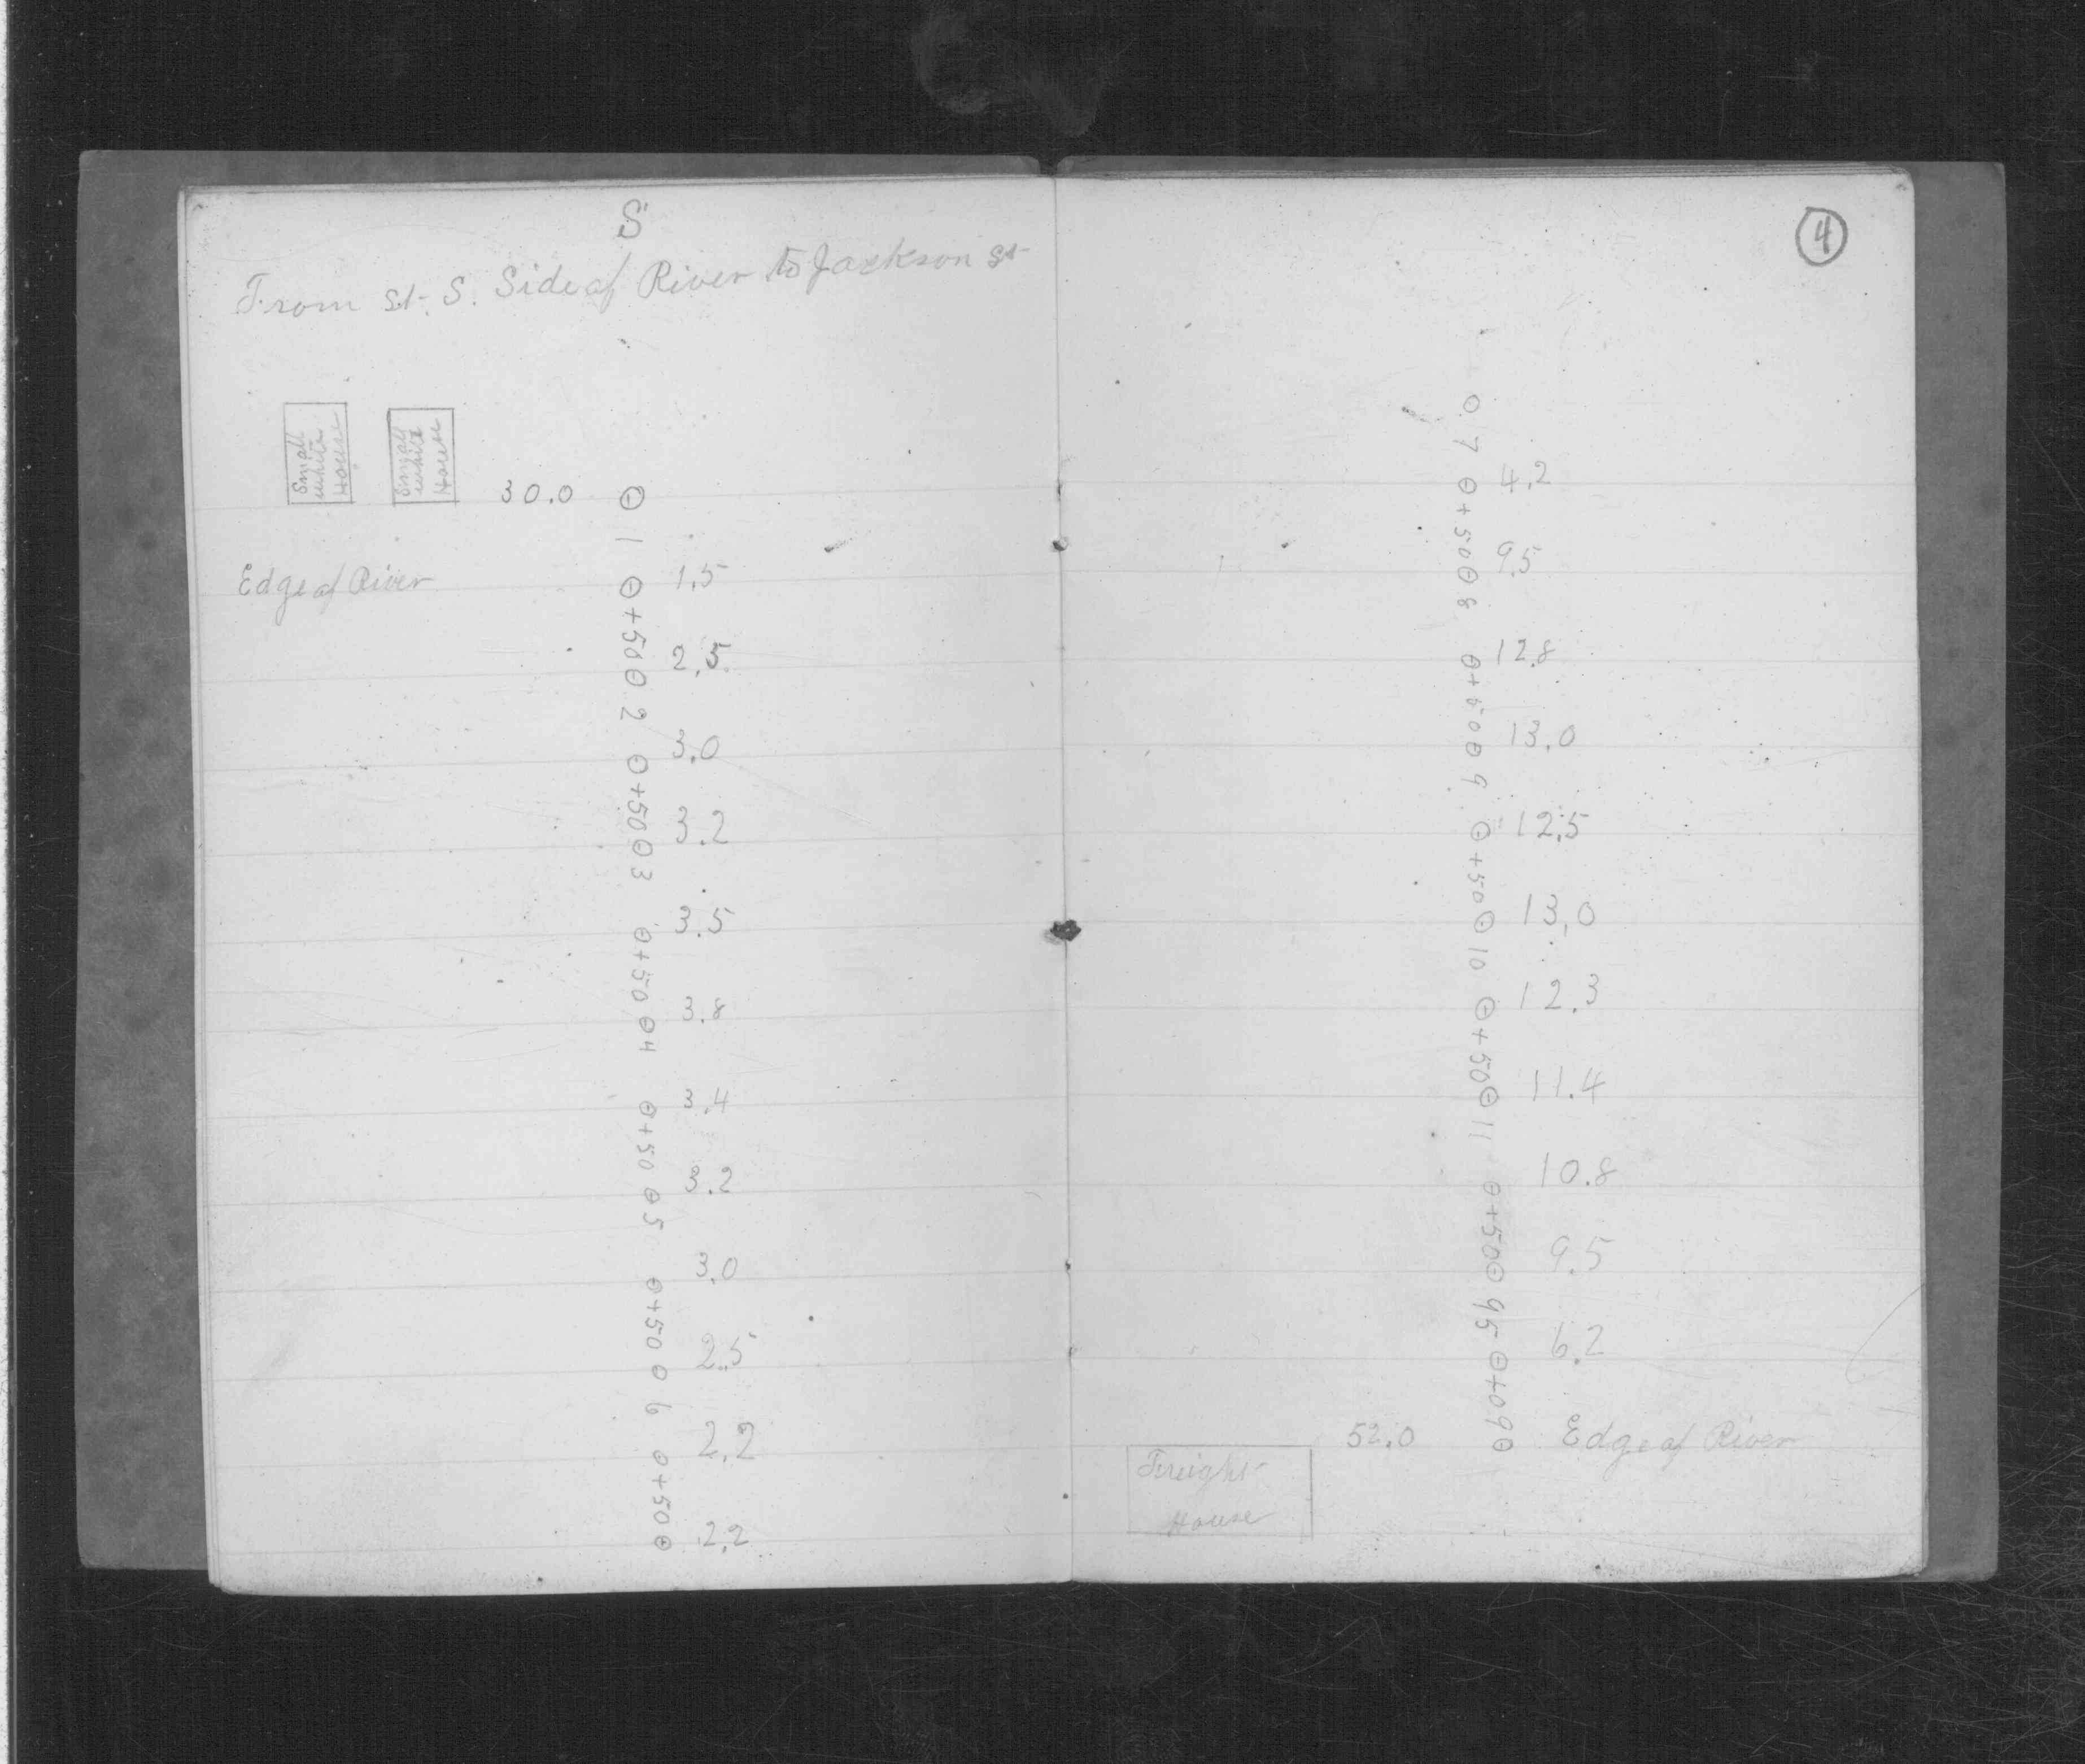 S
From st. S. Side of River to Jackson st
Small white House
Small white House
30.0
1
Edge of River
1.5
+50
2.5
2
3.0
+50
3.2
3
3.5
+50
3.8
4
3.4
+50
3.2
5
3.0
+50
2.5
6
2.2
+50
2.2
4
7
4.2
+50
9.5
8
12.8
+50
13.0
9
12.5
+50
13.0
10
12.3
+50
11.4
11
10.8
+50
9.5
95
6.2
+09
52.0
Edge of River
Freight
House